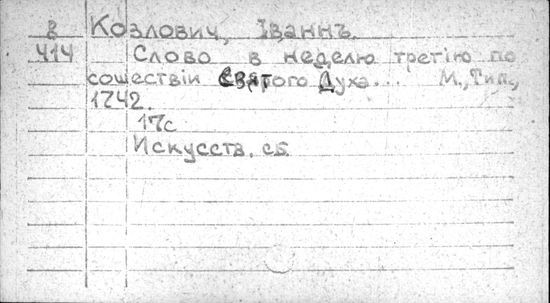 В Козлович, Іваннъ.
414 Слово в неделю третію по
сошествіи Святого Духа... М., Тип.,
1742.
17с
Искусств. сб.